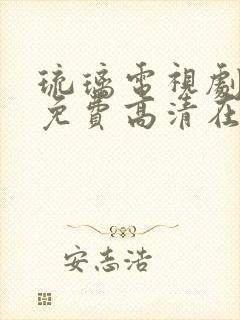 琉璃電視劇
免費高清在
安志浩